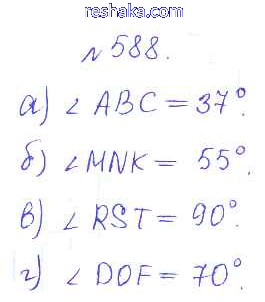 reshaka.com
№588.
а) ∠ABC = 37°.
б) ∠MNK = 55°.
в) ∠RST = 90°.
г) ∠DOF = 70°.